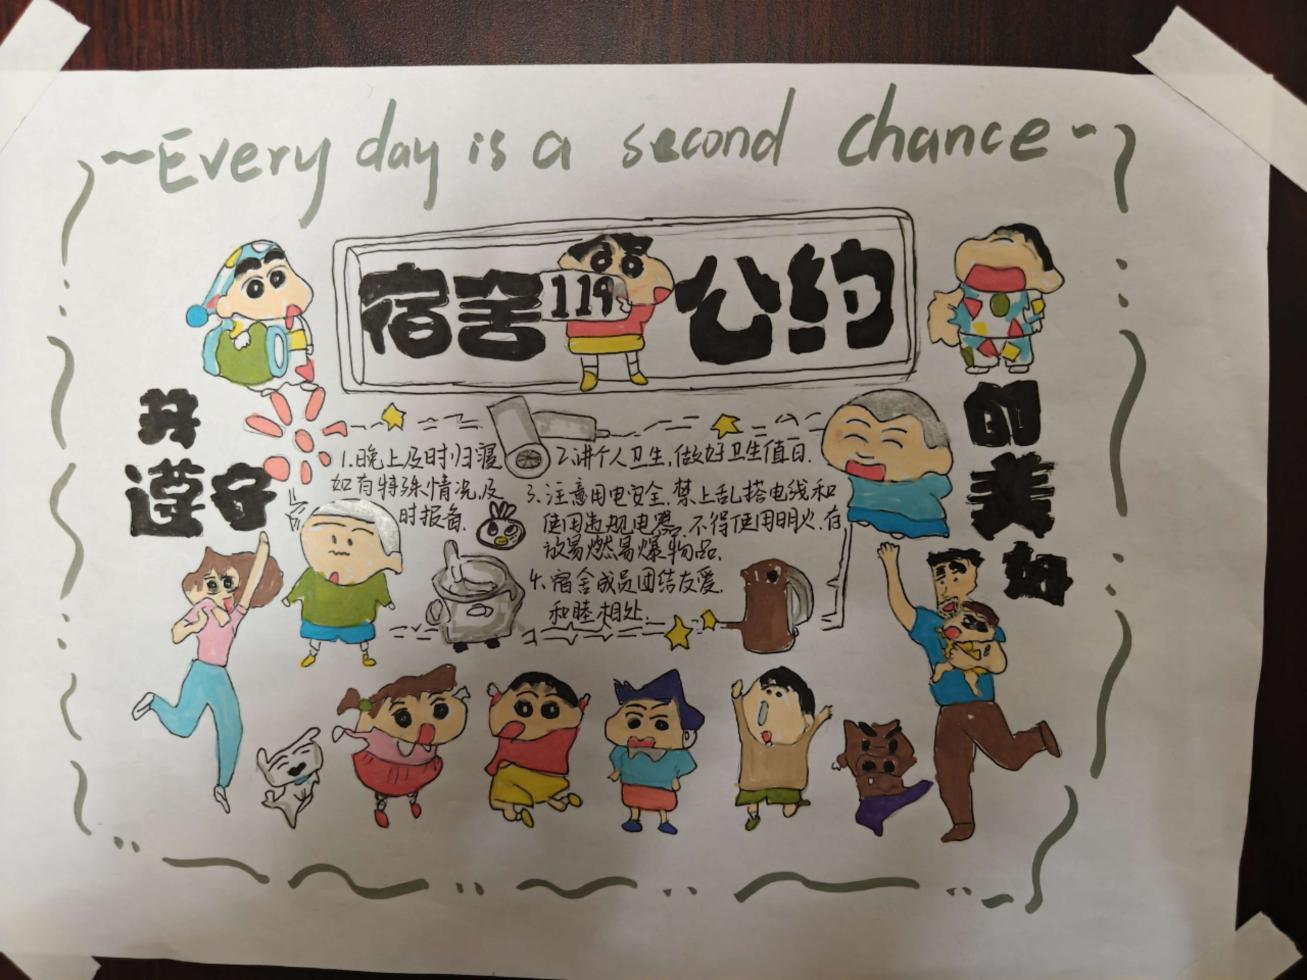 ~Every day is a second chance~
宿舍119公约
共
遵守
的
美
如
1.晚上及时归寝
如有特殊情况及
时报备.
2.讲个人卫生,做好卫生值日.
3.注意用电安全.禁止乱搭电线和
使用违规电器.不得使用明火.存
放易燃易爆物品.
4.宿舍成员团结友爱.
和睦相处.